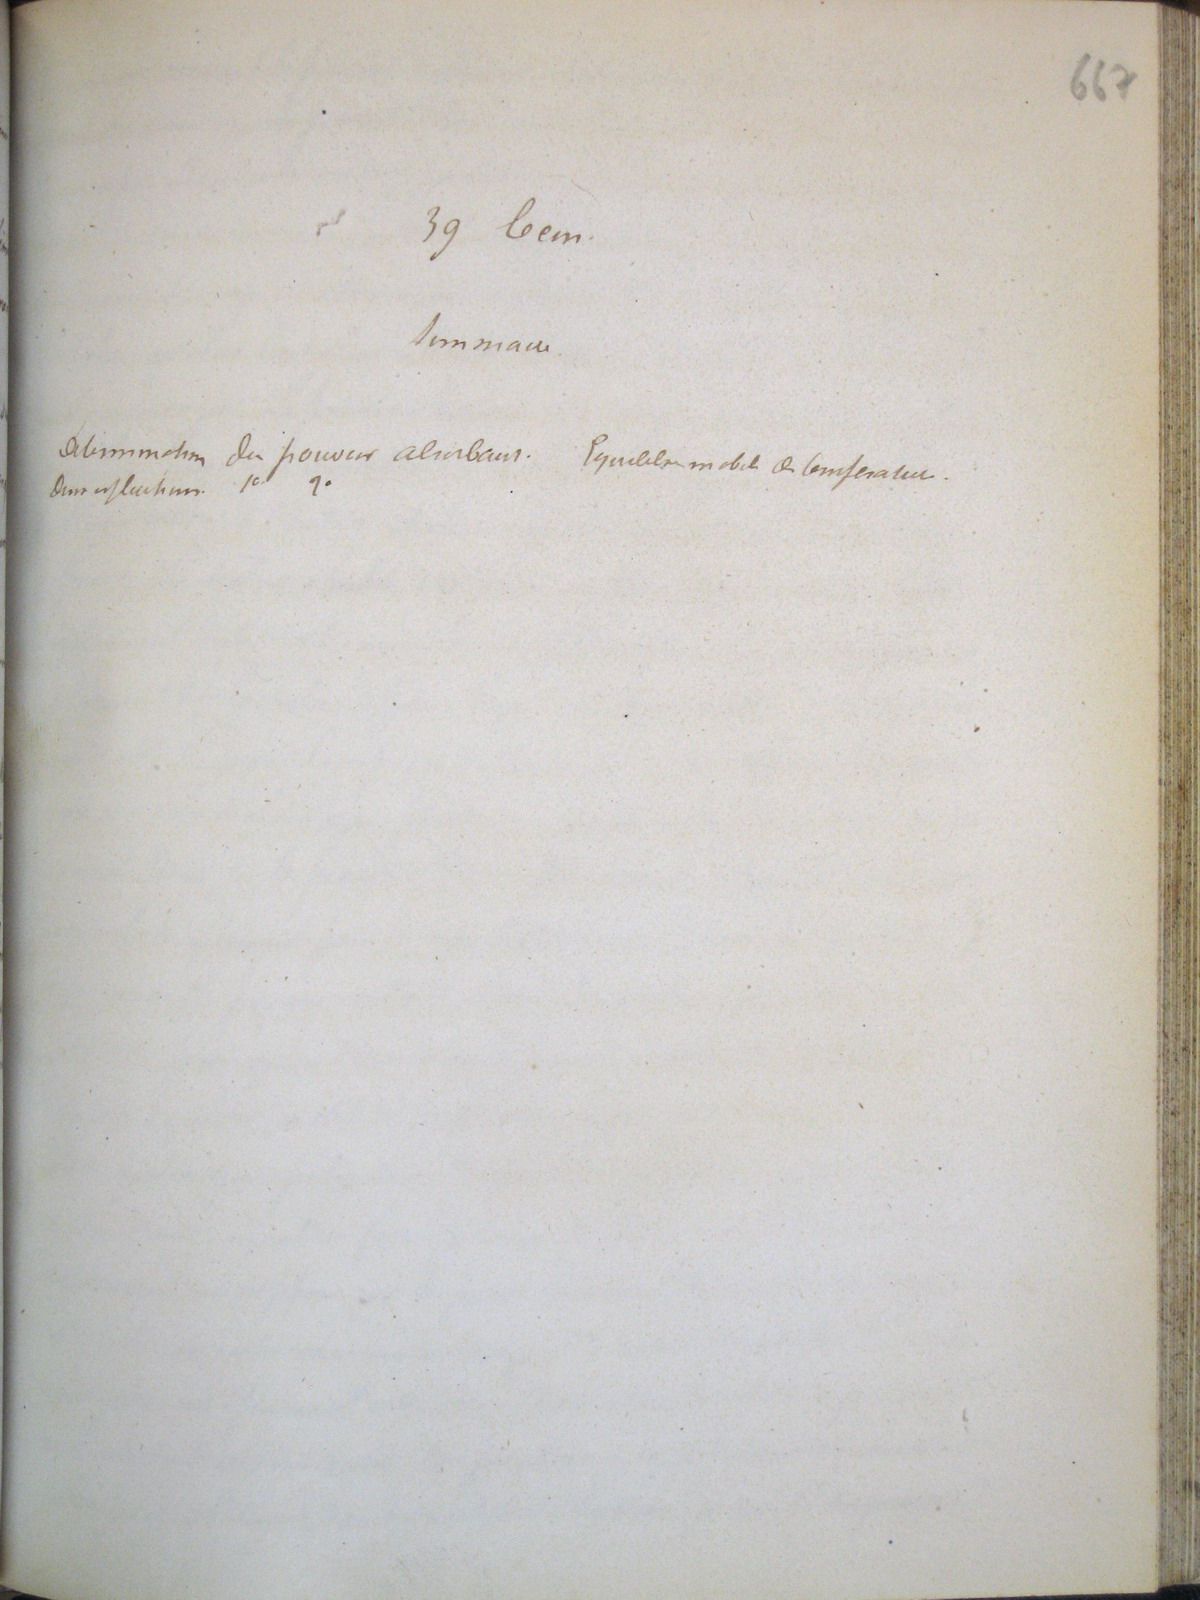 667
39 Leçon.
Sommaire
Détermination du pouvoir absorbant. Equilibre mobile de température.
Deux réflecteurs. 1° 2°